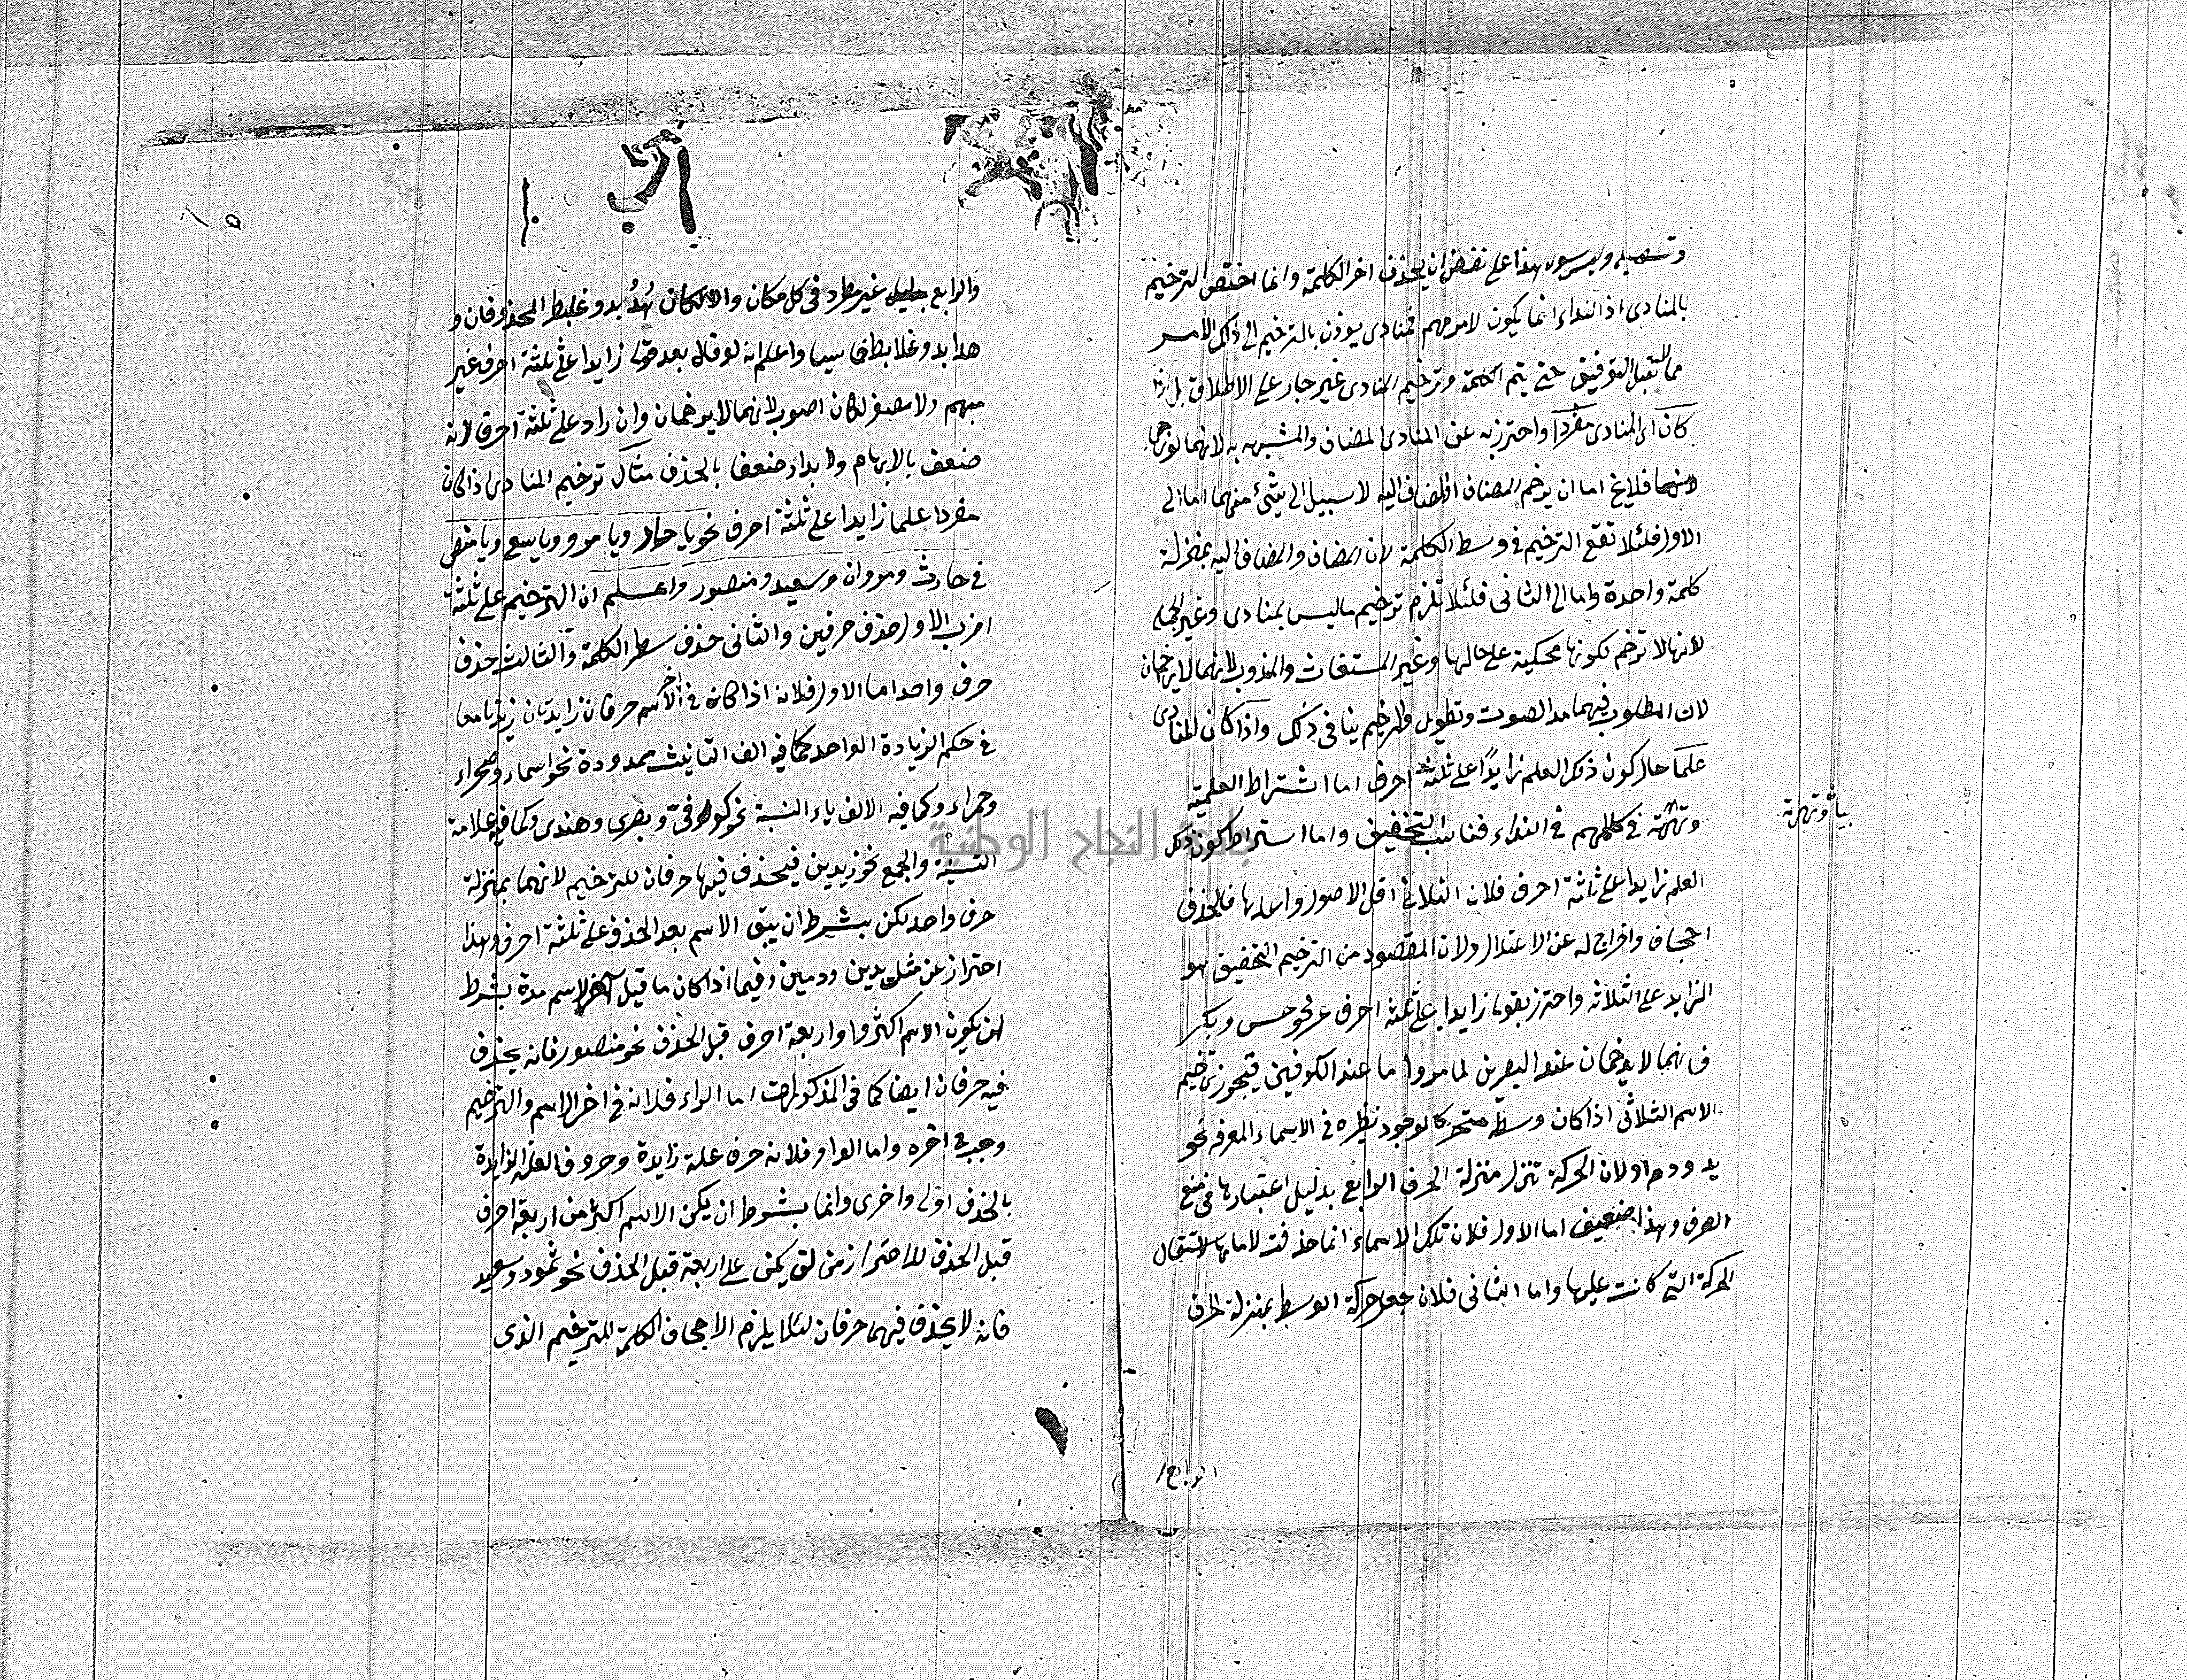 وتسهيله وليس هذا على نقض ان يحذف اخر الكلمة وانما اختص الترخيم
بالمنادى اذ النداء انما يكون لامر مهم فمنادى يوذن بالترخيم الى ذلك الامر
حتى يتم الكلمة وترخيم المنادى غير جار على الاطلاق بل اذا
كان اى المنادى مفردا واحترز به عن المنادى المضاف والمشبه به لانهما لو رخما
فلايخ اما ان يرخم المضاف او المضاف اليه لا سبيل الى شئ منهما اما الى
الاول فلئلا تقع الترخيم فى وسط الكلمة لان المضاف والمضاف اليه بمنزلة
كلمة واحدة واما الى الثانى فلئلا تلزم ترخيم ما ليس بمنادى وغير الجملة
لانها لا ترخم لكونها محكية على حالها وغير المستغاث والمندوب لانهما لا يرخمان
لان المطلوب فيهما مد الصوت وتطويل والترخيم ينافى ذلك واذا كان المنادى
علما حال كون ذلك العلم زايدا على ثلثة احرف اما اشتراط العلمية
فى كلامهم فى النداء فناسب التخفيف واما اشتراط كون ذلك
العلم زايدا على ثلثة احرف فلان الثلاثى اقل الاصول واعدلها فالحذف
اجحاف واخراج له عن الاعتدال ولان المقصود من الترخيم التخفيف هو
الزايد على الثلاثه واحترز بقوله زايدا على ثلثة احرف عن نحو حسن وبكر
فانهما لا يرخمان عند البصرين لما مر واما عند الكوفين فيجوز ترخيم
الاسم الثلاثى اذا كان وسطه متحركا لوجود نظيره فى الاسماء المعرفه نحو
يد ودم اولان الحركة تنزل منزلة الحرف الرابع بدليل اعتبارها فى منع
الصرف وهذا ضعيف اما الاول فلان تلك الاسماء انما حذفت لاماتها لاستثقال
الحركة التى كانت عليها واما الثانى فلان جعل حركة الوسط بمنزلة الحرف
الرابع
بيان وتهرية
والرابع غير مطرد فى كل مكان والا لكان هُدُ بد وغلبط المحذوفان و
هدابد وغلابط خماسيا واعلم انه لو قال بعد قوله زايدا على ثلثة احرف غير
مبهم ولا مصغر لكان اصوب لانهما لا يرخمان وان زاد على ثلثة احرف لانه
ضعف بالابهام ضعفا بالحذف مثال ترخيم المنادى اذا كان
مفردا علما زايدا على ثلثة احرف نحو يا حار ويا مرو ويا سع ويا منص
فى حارث ومروان وسعيد ومنصور واعلم ان الترخيم على ثلثة
اضرب الاول حذف حرفين والثانى حذف شطر الكلمة والثالث حذف
حرف واحد اما الاول فلانه اذا كان فى اخر الاسم حرفان زايدتان زيدتا معا
فى حكم الزيادة الواحدة كما فيه الف التانيث ممدودة نحو اسماء وصحراء
وحمراء وكما فيه الالف ياء النسبة نحو كوفى وبصرى وهندى وكما فيه علامة
التثنية والجمع نحو زيدين فيحذف فيها حرفان للترخيم لانهما بمنزلة
حرف واحد لكن بشرط ان يبقى الاسم بعد الحذف على ثلثة احرف وهذا
احتراز عن مثل يدين ودمين وفيما اذا كان ما قبل آخر الاسم مدة بشرط
ان يكون الاسم اكثر من اربعة احرف قبل الحذف نحو منصور فانه يحذف
فيه حرفان ايضا كما فى المذكورات اما الراء فلانه فى اخر الاسم والترخيم
وجب فى اخره واما الواو فلانه حرف علة زايدة وحروف العلة الزايدة
بالحذف اولى واخرى وانما بشرط ان يكن الاسم اكثر من اربعة احرف
قبل الحذف للاحتراز من لو يكن على اربعة قبل الحذف نحو ثمود وسعيد
فانه لا يحذف فيهما حرفان لئلا يلزم الاجحاف الكلمة للترخيم الذى
جامعة النجاح الوطنية